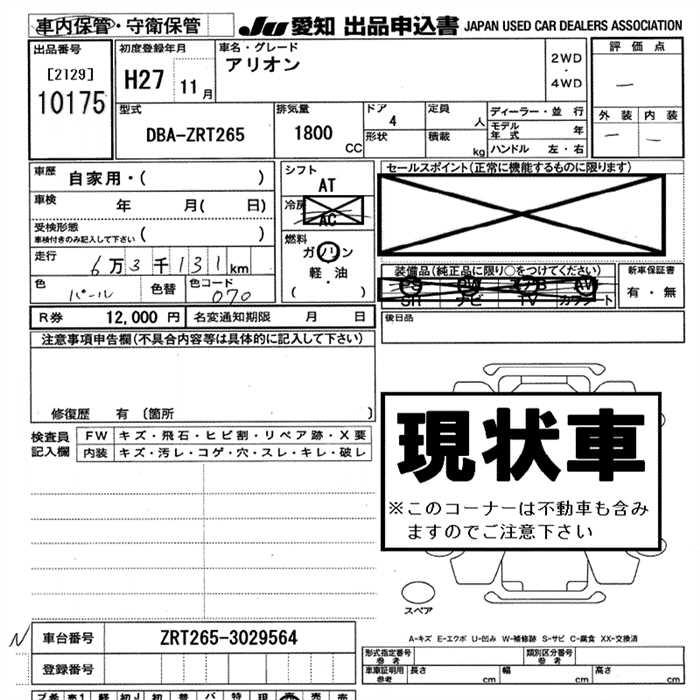 車内保管・守衛保管 JU 愛知 出品申込書 JAPAN USED CAR DEALERS ASSOCIATION
出品番号 初度登録年月 車名・グレード 評価点
[2129] H27 11月 アリオン 2WD ・ 4WD —
10175
型式 排気量 ドア 定員 ディーラー・並 行 外装 内装
DBA-ZRT265 1800 CC 4 人 モデル年式 年 — —
形状 積載 kg ハンドル 左・右
車歴 自家用・( ) シフト セールスポイント(正常に機能するものに限ります)
AT
車検 年 月( 日) 冷房
AC
受検形態
車検付きのみ記入して下さい ( )
燃料
走行 6万3千131km ガソリン
軽・油
( )
装備品(純正品に限り○をつけてください) 新車保証書
色 パール 色替 色コード 070 PS PW エアB AW 有・無
SR ナビ TV カワシート
R券 12,000 円 名変通知期限 月 日 後日品
注意事項申告欄(不具合内容等は具体的に記入して下さい)
修復歴 有 〔箇所 〕
現状車
※このコーナーは不動車も含み
ますのでご注意下さい
検査員 FW キズ・飛石・ヒビ割・リペア跡・X要
記入欄 内装 キズ・汚レ・コゲ・穴・スレ・キレ・破レ
スペア
A-キズ E-エクボ U-凹み W-補修跡 S-サビ C-腐食 XX-交換済
N 車台番号 ZRT265-3029564
登録番号
形式指定番号 参考 類別区分番号 参考
車庫証明用 参考 長さ cm 幅 cm 高さ cm